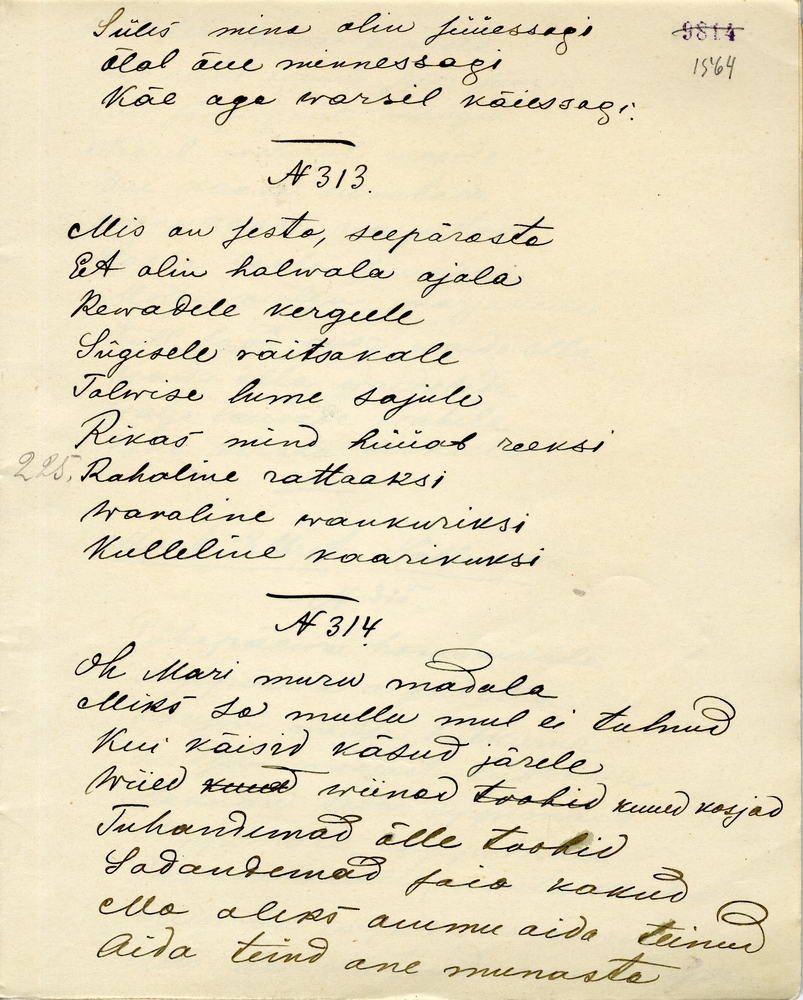 Süles mina olin süüessagi
9814
Õlal õue minnessagi
1564
Käe aga warsil käiessagi.
N 313.
Mis on sesta, seepärasta
Et olin halwala ajala
Kewadele kergeele
Sügisele räitsakale
Talwise lume sajule
Rikas mind hüüab reeksi
225.
Rahaline rattaaksi
Waraline wankuriksi
Kulleline kaarikuksi
N 314
Oh Mari muru madala
Miks sa mullu mul ei tulnud
Kui käisid käsud järele
Wiied kuud wiinad toobid kuued kosjad
Tuhandemad õlle toobid
Sadandemad saia kakud
Ma oleks ammu aida teinud
Aida teind ane munasta